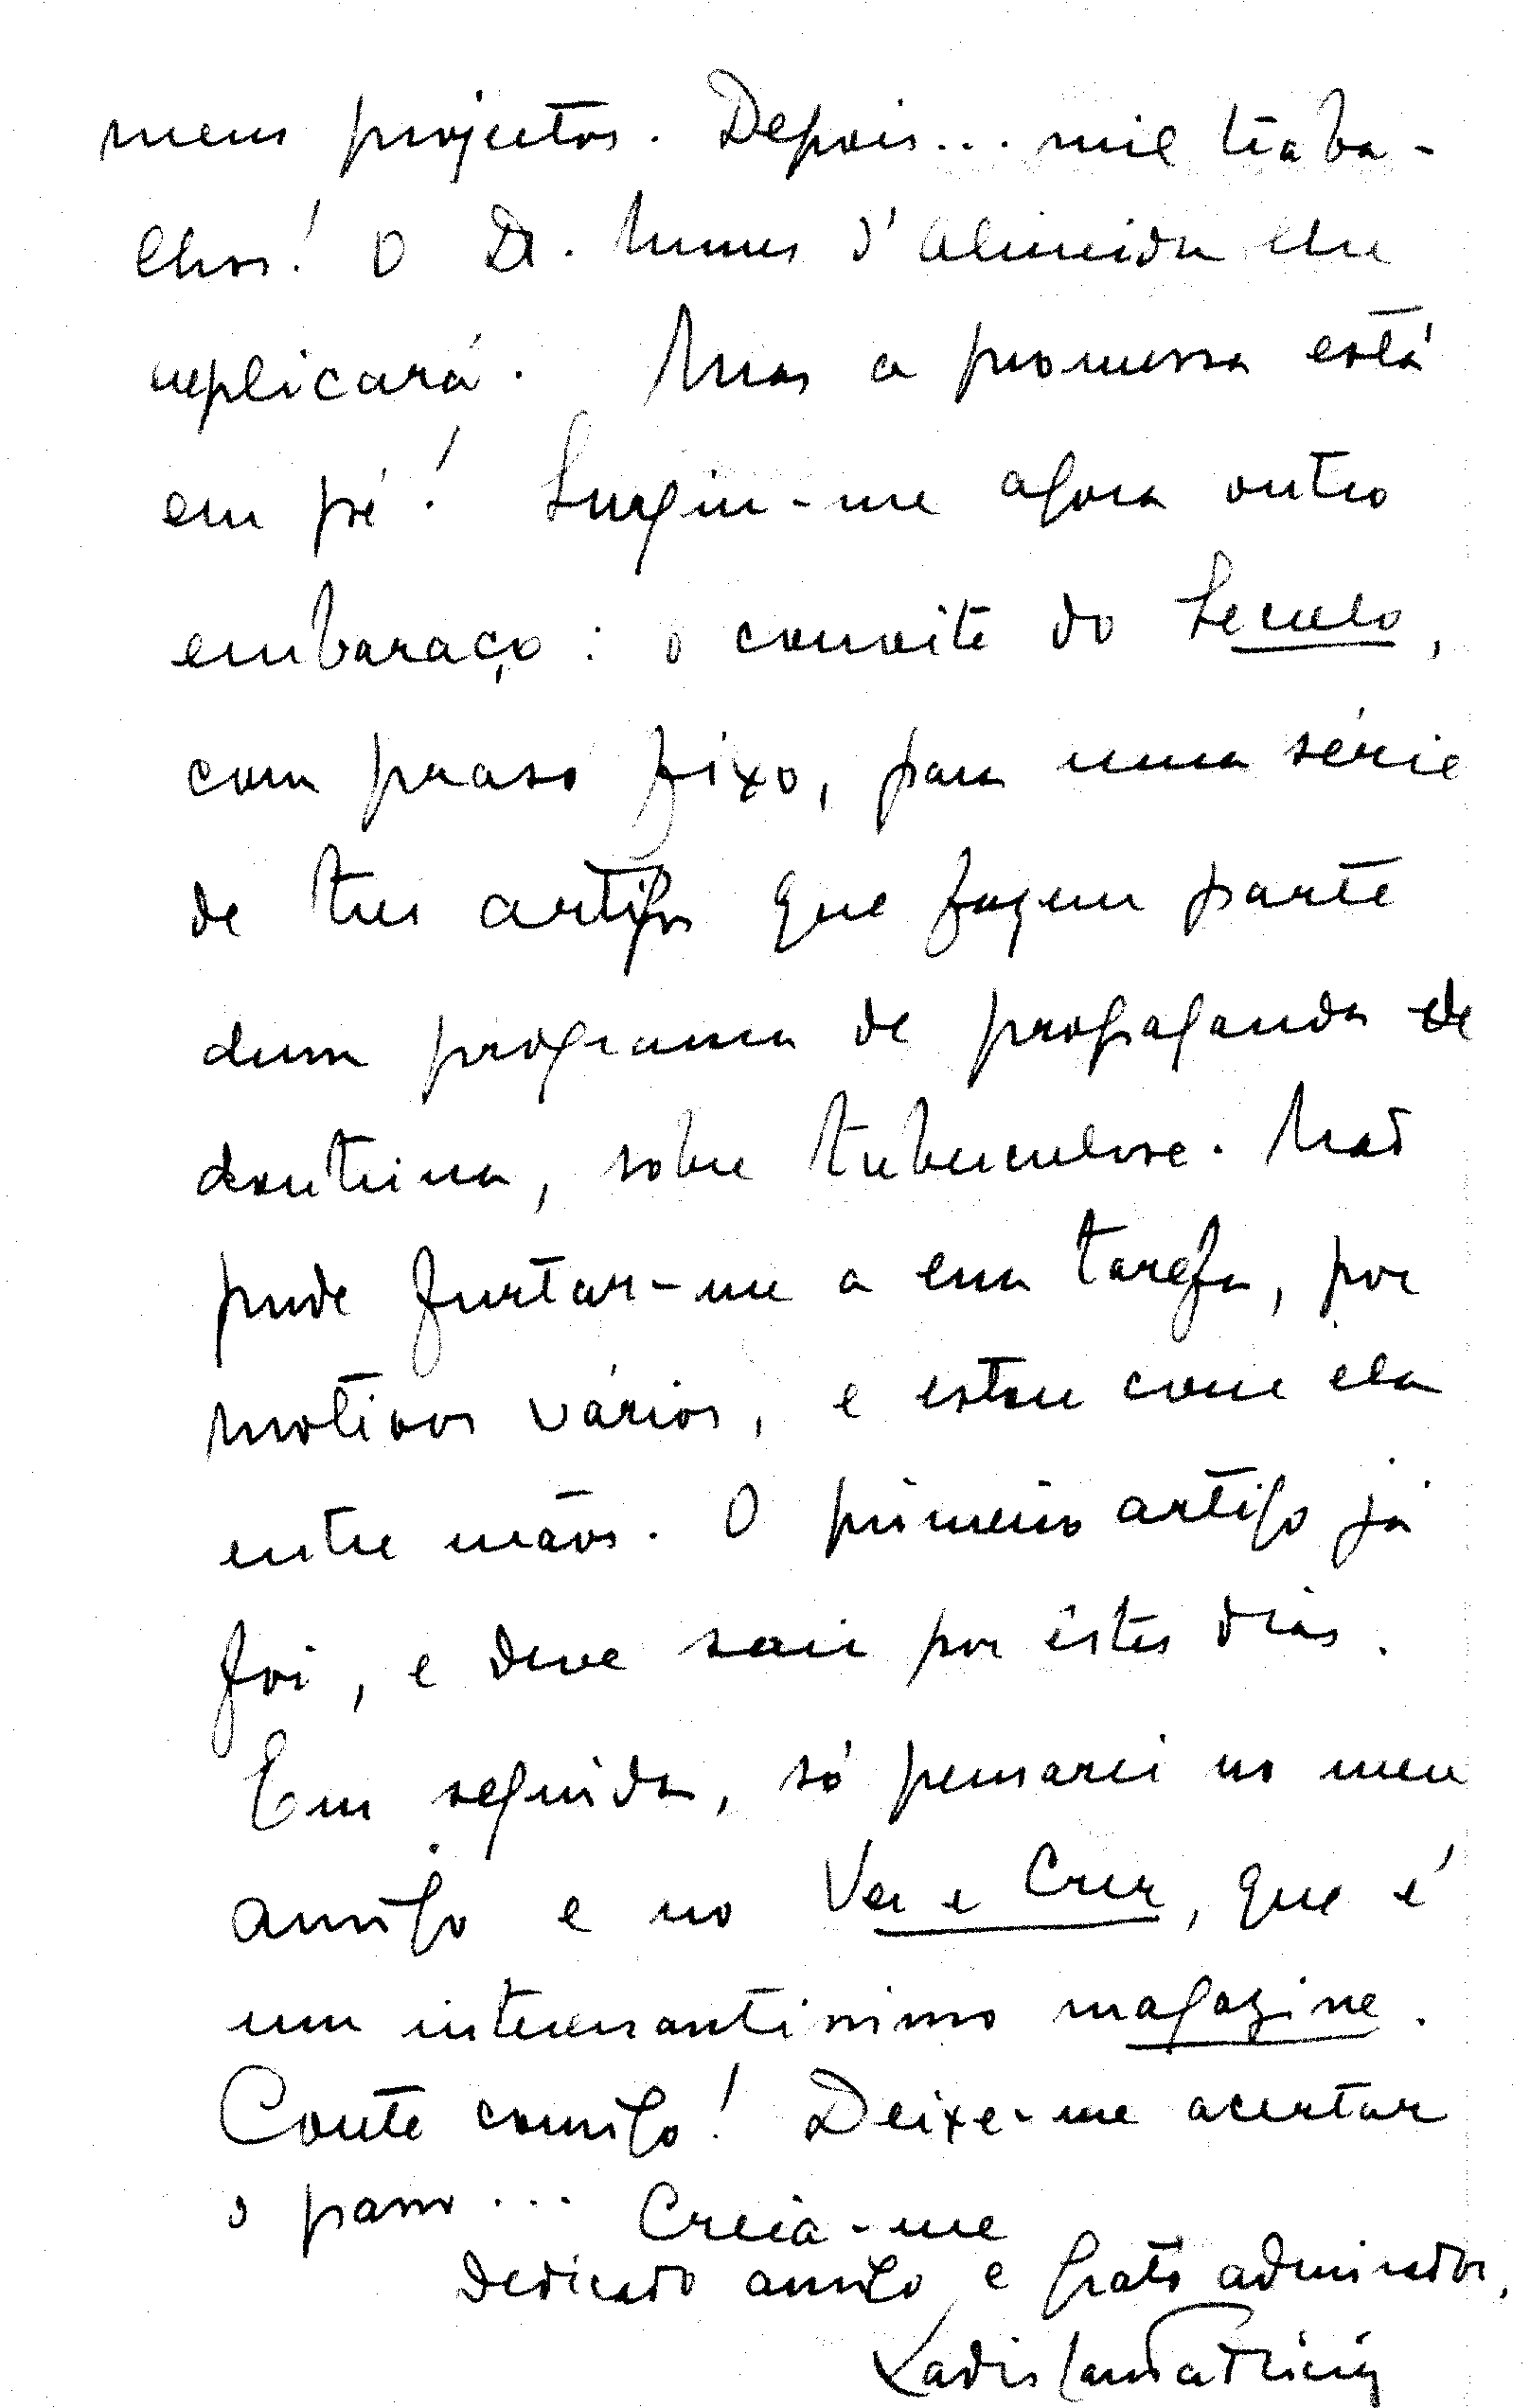 meus projectos. Depois... mil traba-
lhos! O Dr. Nunes d'Almeida lhe
explicará. Mas a promessa está
em pé! Surgiu-me agora outro
embaraço: o convite do Seculo,
com praso fixo, para uma série
de tres artigos que fazem parte
dum programa de propaganda de
doutrina, sobre tuberculose. Não
pude furtar-me a essa tarefa, por
motivos vários, e estou com ela
entre mãos. O primeiro artigo já
foi, e deve sair por êstes dias.
Em seguida, só pensarei no meu
amigo e no Ver e Crer, que é
um interessantissimo magazine.
Conte comigo! Deixe-me acertar
o passo... Creia-me
dedicado amigo e grato admirador,
Ladislau Patricio